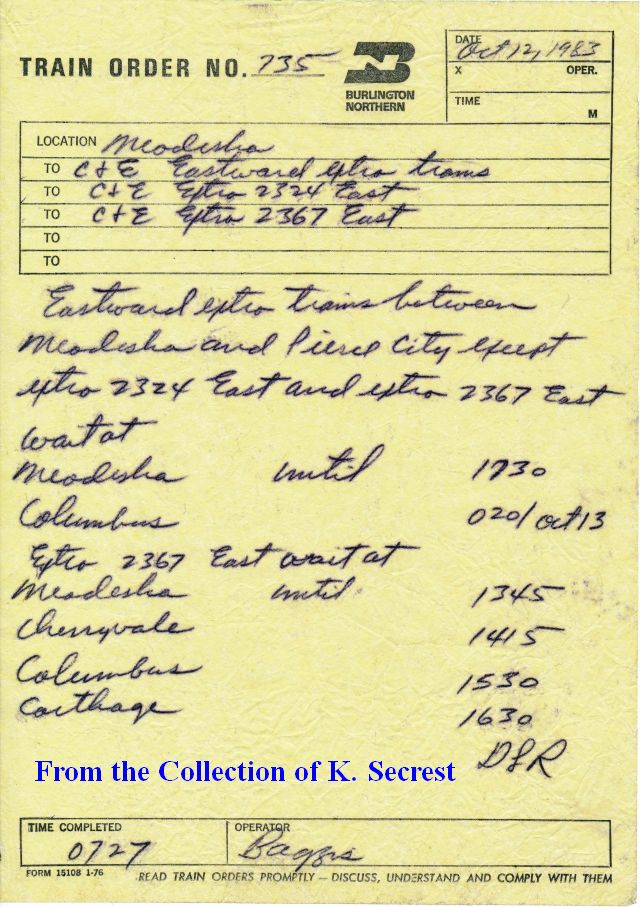 TRAIN ORDER NO. 735
BURLINGTON
NORTHERN
DATE Oct 12, 1983
X OPER.
TIME M
LOCATION Neodesha
TO C+E Eastward extra trains
TO C+E Extra 2324 East
TO C+E Extra 2367 East
TO
TO
Eastward extra trains between
Neodesha and Pierce City except
extra 2324 East and extra 2367 East
wait at
Neodesha until 1730
Columbus 0201 Oct 13
Extra 2367 East wait at
Neodesha until 1345
Cherryvale 1415
Columbus 1530
Carthage 1630
DLR
From the Collection of K. Secrest
TIME COMPLETED 0727
OPERATOR Baggs
FORM 15108 1-76 READ TRAIN ORDERS PROMPTLY — DISCUSS, UNDERSTAND AND COMPLY WITH THEM